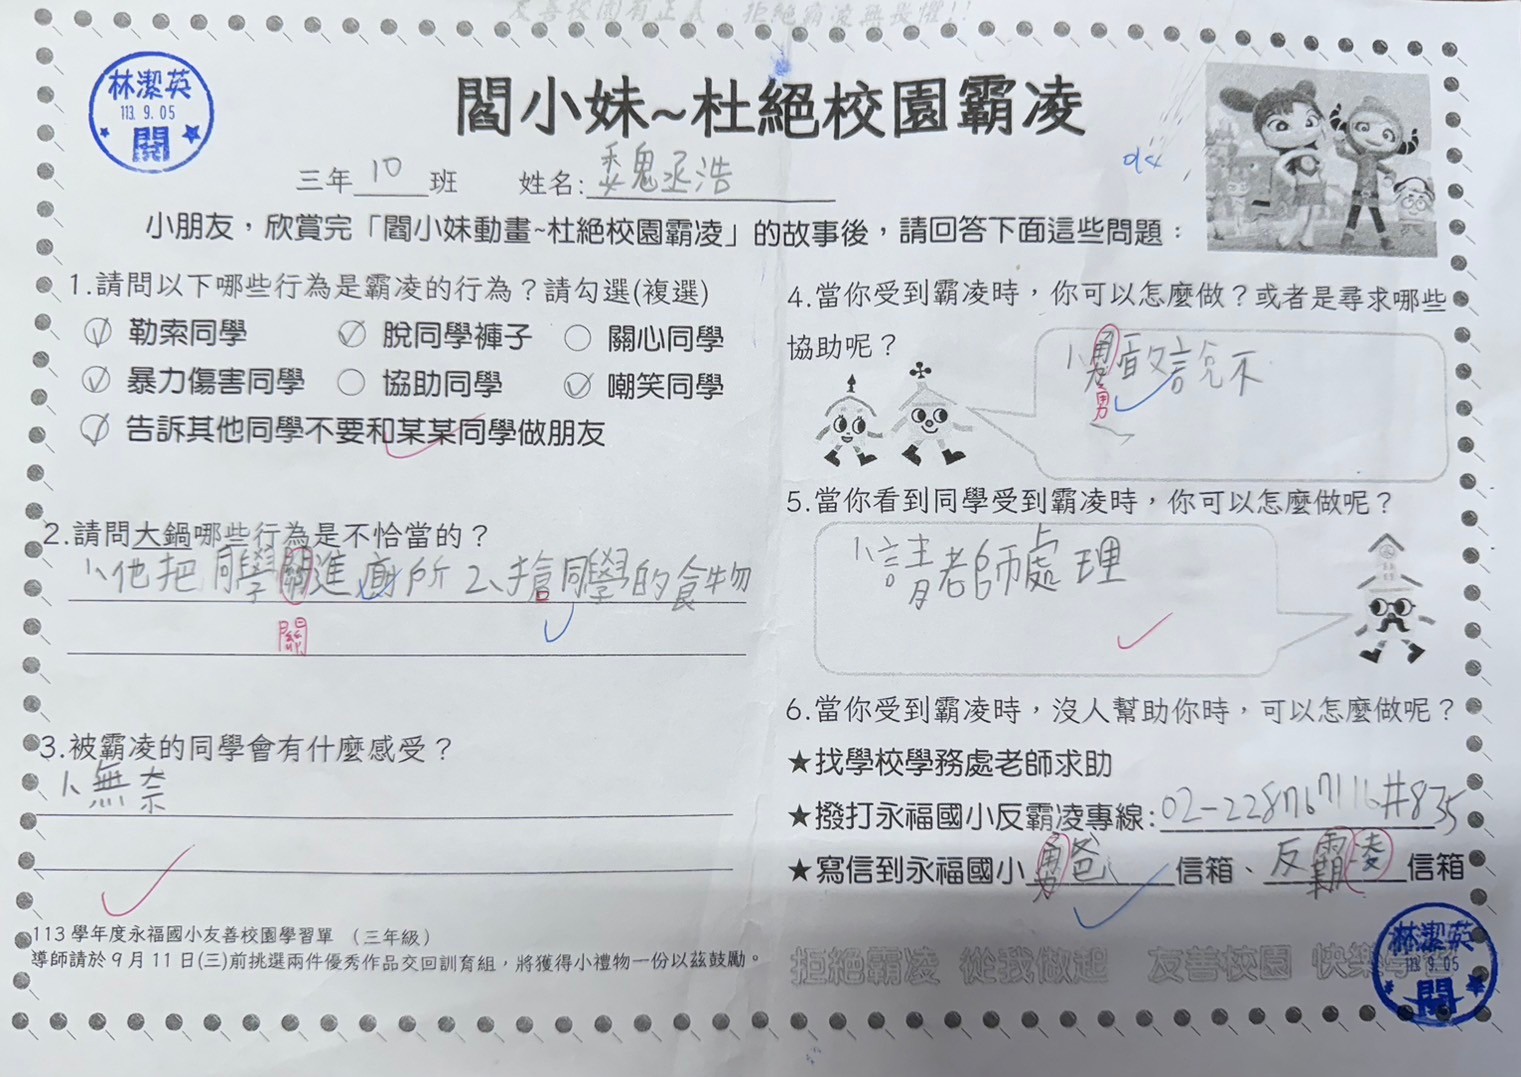 友善校園有正義 拒絕霸凌無畏懼!!
林潔英
113. 9. 05
閱
閻小妹~杜絕校園霸凌
三年10班 姓名:魏丞浩
小朋友，欣賞完「閻小妹動畫~杜絕校園霸凌」的故事後，請回答下面這些問題：
1.請問以下哪些行為是霸凌的行為？請勾選(複選)
勒索同學 脫同學褲子 關心同學
暴力傷害同學 協助同學 嘲笑同學
告訴其他同學不要和某某同學做朋友
2.請問大鍋哪些行為是不恰當的？
1、他把同學關進廁所 2、搶同學的食物
關
3.被霸凌的同學會有什麼感受？
1、無奈
113學年度永福國小友善校園學習單 （三年級）
導師請於9月11日(三)前挑選兩件優秀作品交回訓育組，將獲得小禮物一份以茲鼓勵。
4.當你受到霸凌時，你可以怎麼做？或者是尋求哪些
協助呢？
1、勇敢說不
勇
5.當你看到同學受到霸凌時，你可以怎麼做呢？
1、請老師處理
6.當你受到霸凌時，沒人幫助你時，可以怎麼做呢？
★找學校學務處老師求助
★撥打永福國小反霸凌專線:02-228767116#835
★寫信到永福國小勇爸信箱、反霸凌信箱
拒絕霸凌 從我做起 友善校園 快樂學習
林潔英
113. 9. 05
閱